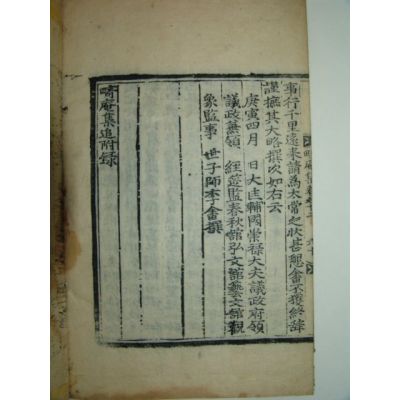 事行千里遠来請為太常之狀甚懇畬不獲終辭
謹摭其大略撰次如右云
庚寅四月 日大匡輔國崇祿大夫議政府領
議政兼領 經筵監春秋館弘文館藝文館觀
象監事 世子師李畬撰
畸庵集追附錄